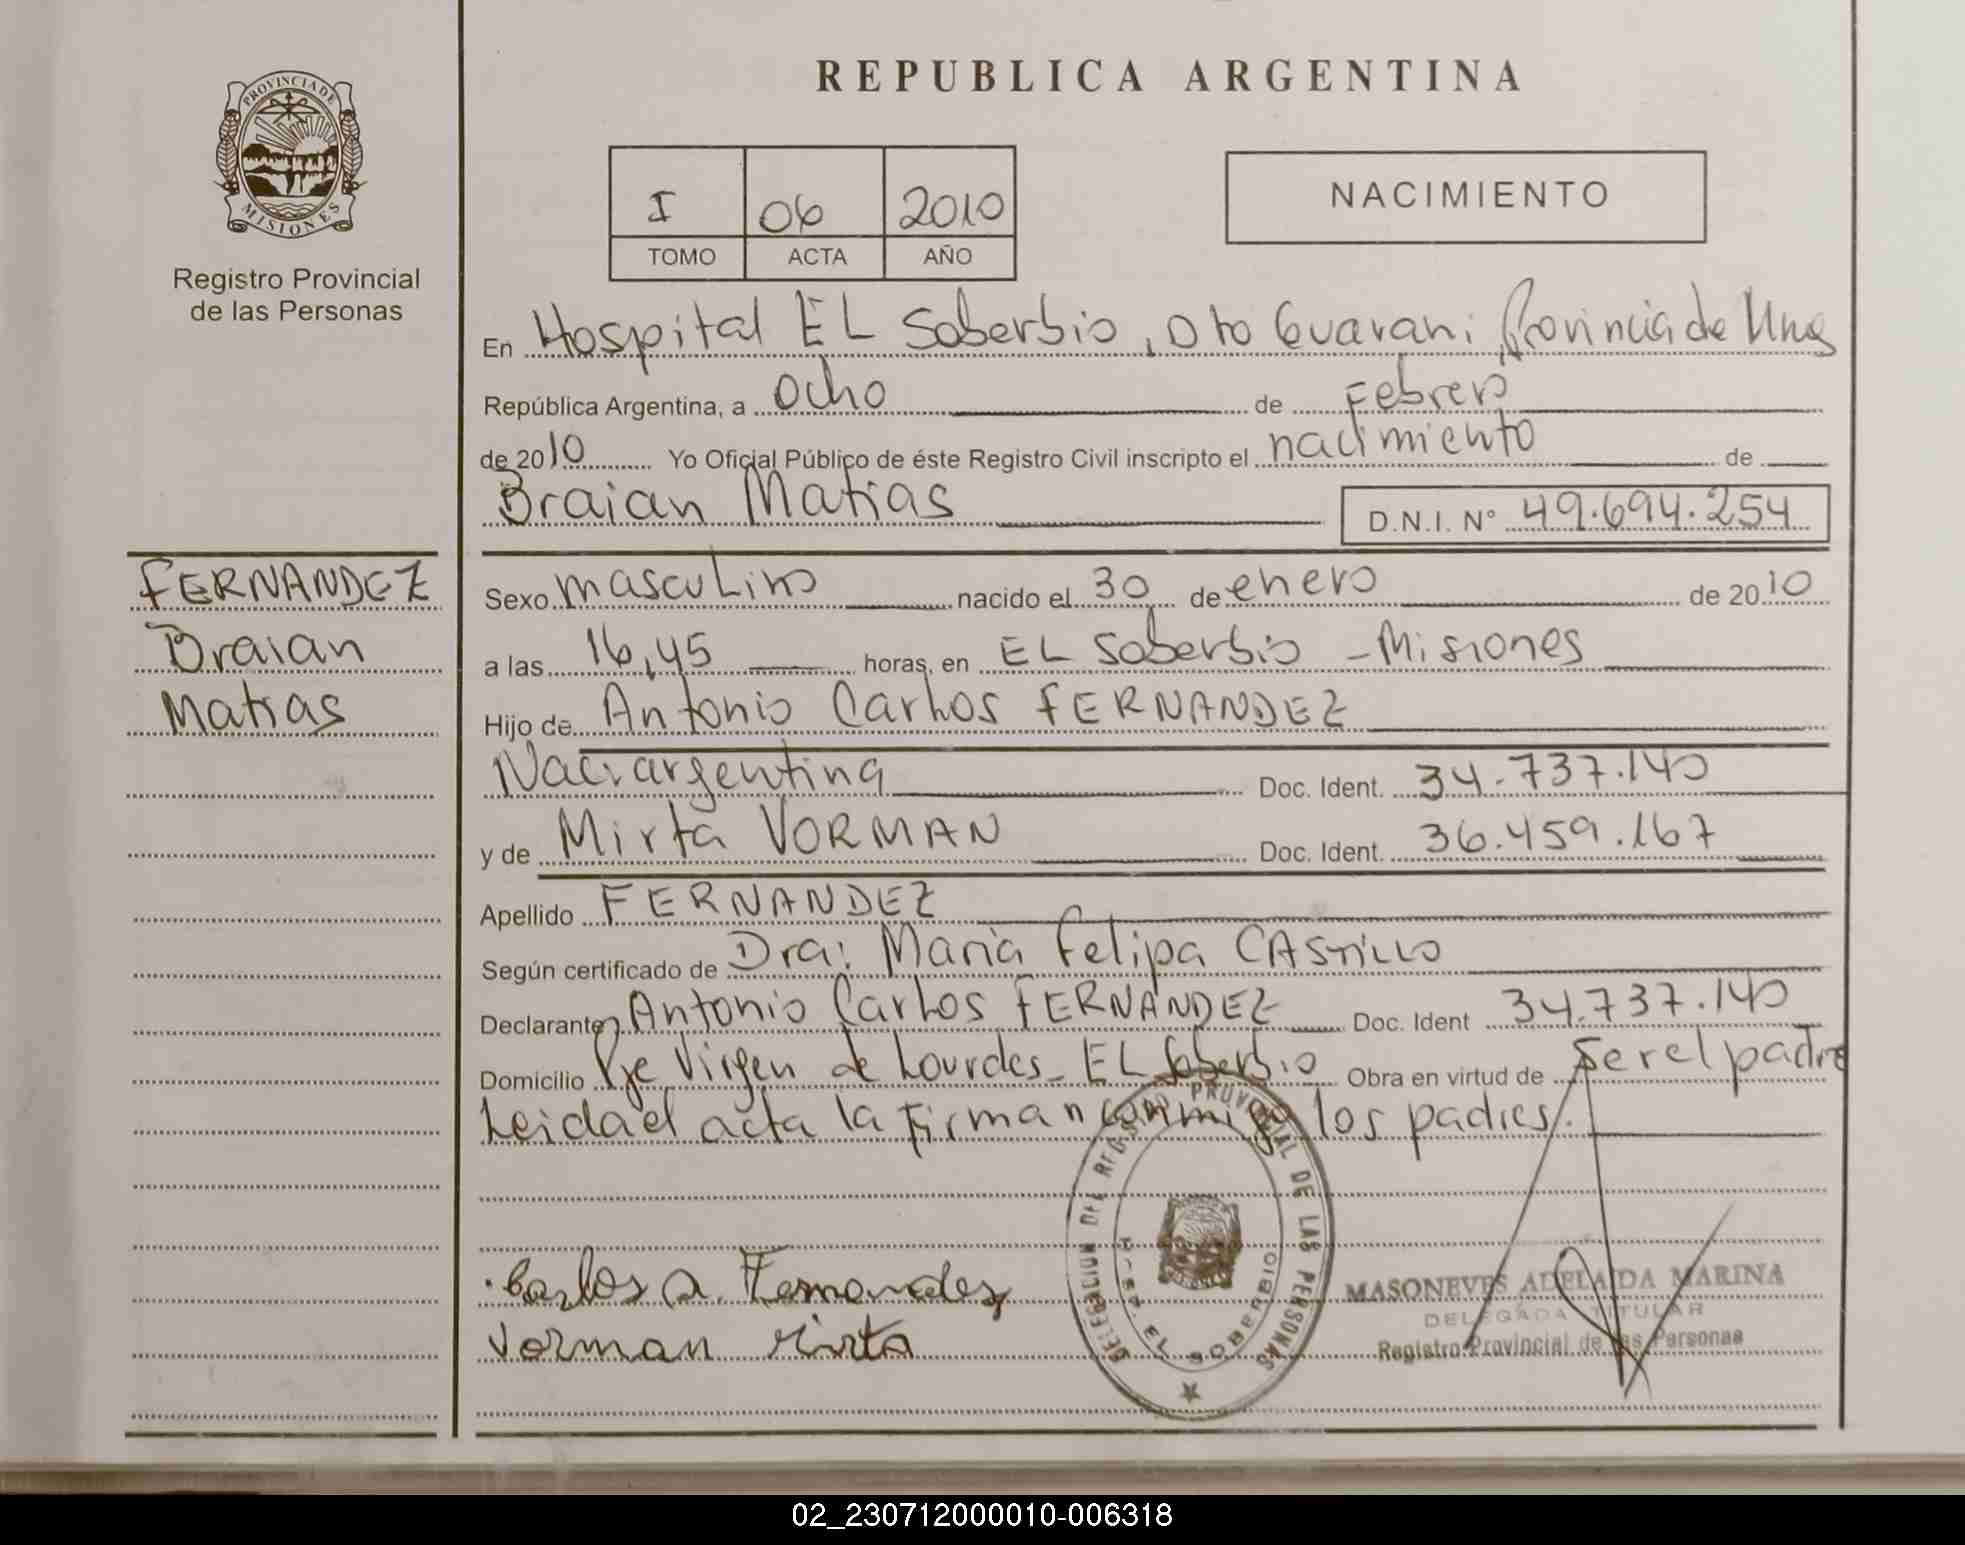 REPUBLICA ARGENTINA
PROVINCIA DE
MISIONES
Registro Provincial
de las Personas
I 06 2010
TOMO ACTA AÑO
NACIMIENTO
En Hospital EL Soberbio, Dto Guarani, Provincia de Mnes
República Argentina, a Ocho de Febrero
de 2010 Yo Oficial Público de éste Registro Civil inscripto el nacimiento de
Braian Matias D.N.I. N° 49.694.254
FERNANDEZ
Braian
Matias
Sexo masculino nacido el 30 de enero de 2010
a las 16,45 horas, en EL Soberbio - Misiones
Hijo de Antonio Carlos FERNANDEZ
Nac: argentina Doc. Ident. 34.737.140
y de Mirta VORMAN Doc. Ident. 36.459.167
Apellido FERNANDEZ
Según certificado de Dra: Maria Felipa CASTILLO
Declarante Antonio Carlos FERNANDEZ Doc. Ident 34.737.140
Domicilio Pje Virgen de Lourdes - EL Soberbio Obra en virtud de ser el padre
Leida el acta la firman conmigo los padres.
DELEGACION DEL REGISTRO PROVINCIAL DE LAS PERSONAS
EL SOBERBIO
Carlos a. Fernandez
Vorman Mirta
MASONEVES ADELAIDA MARINA
DELEGADA TITULAR
Registro Provincial de las Personas
02_230712000010-006318